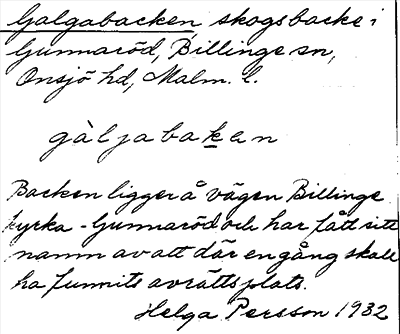 Galgabacken, skogsbacke i
Gunnaröd, Billinge sn,
Onsjö hd, Malm. l.
gàljabaken
Backen ligger å vägen Billinge
kyrka - Gunnaröd och har fått sitt
namn av att där en gång skall
ha funnits avrättsplats.
Helga Persson 1932